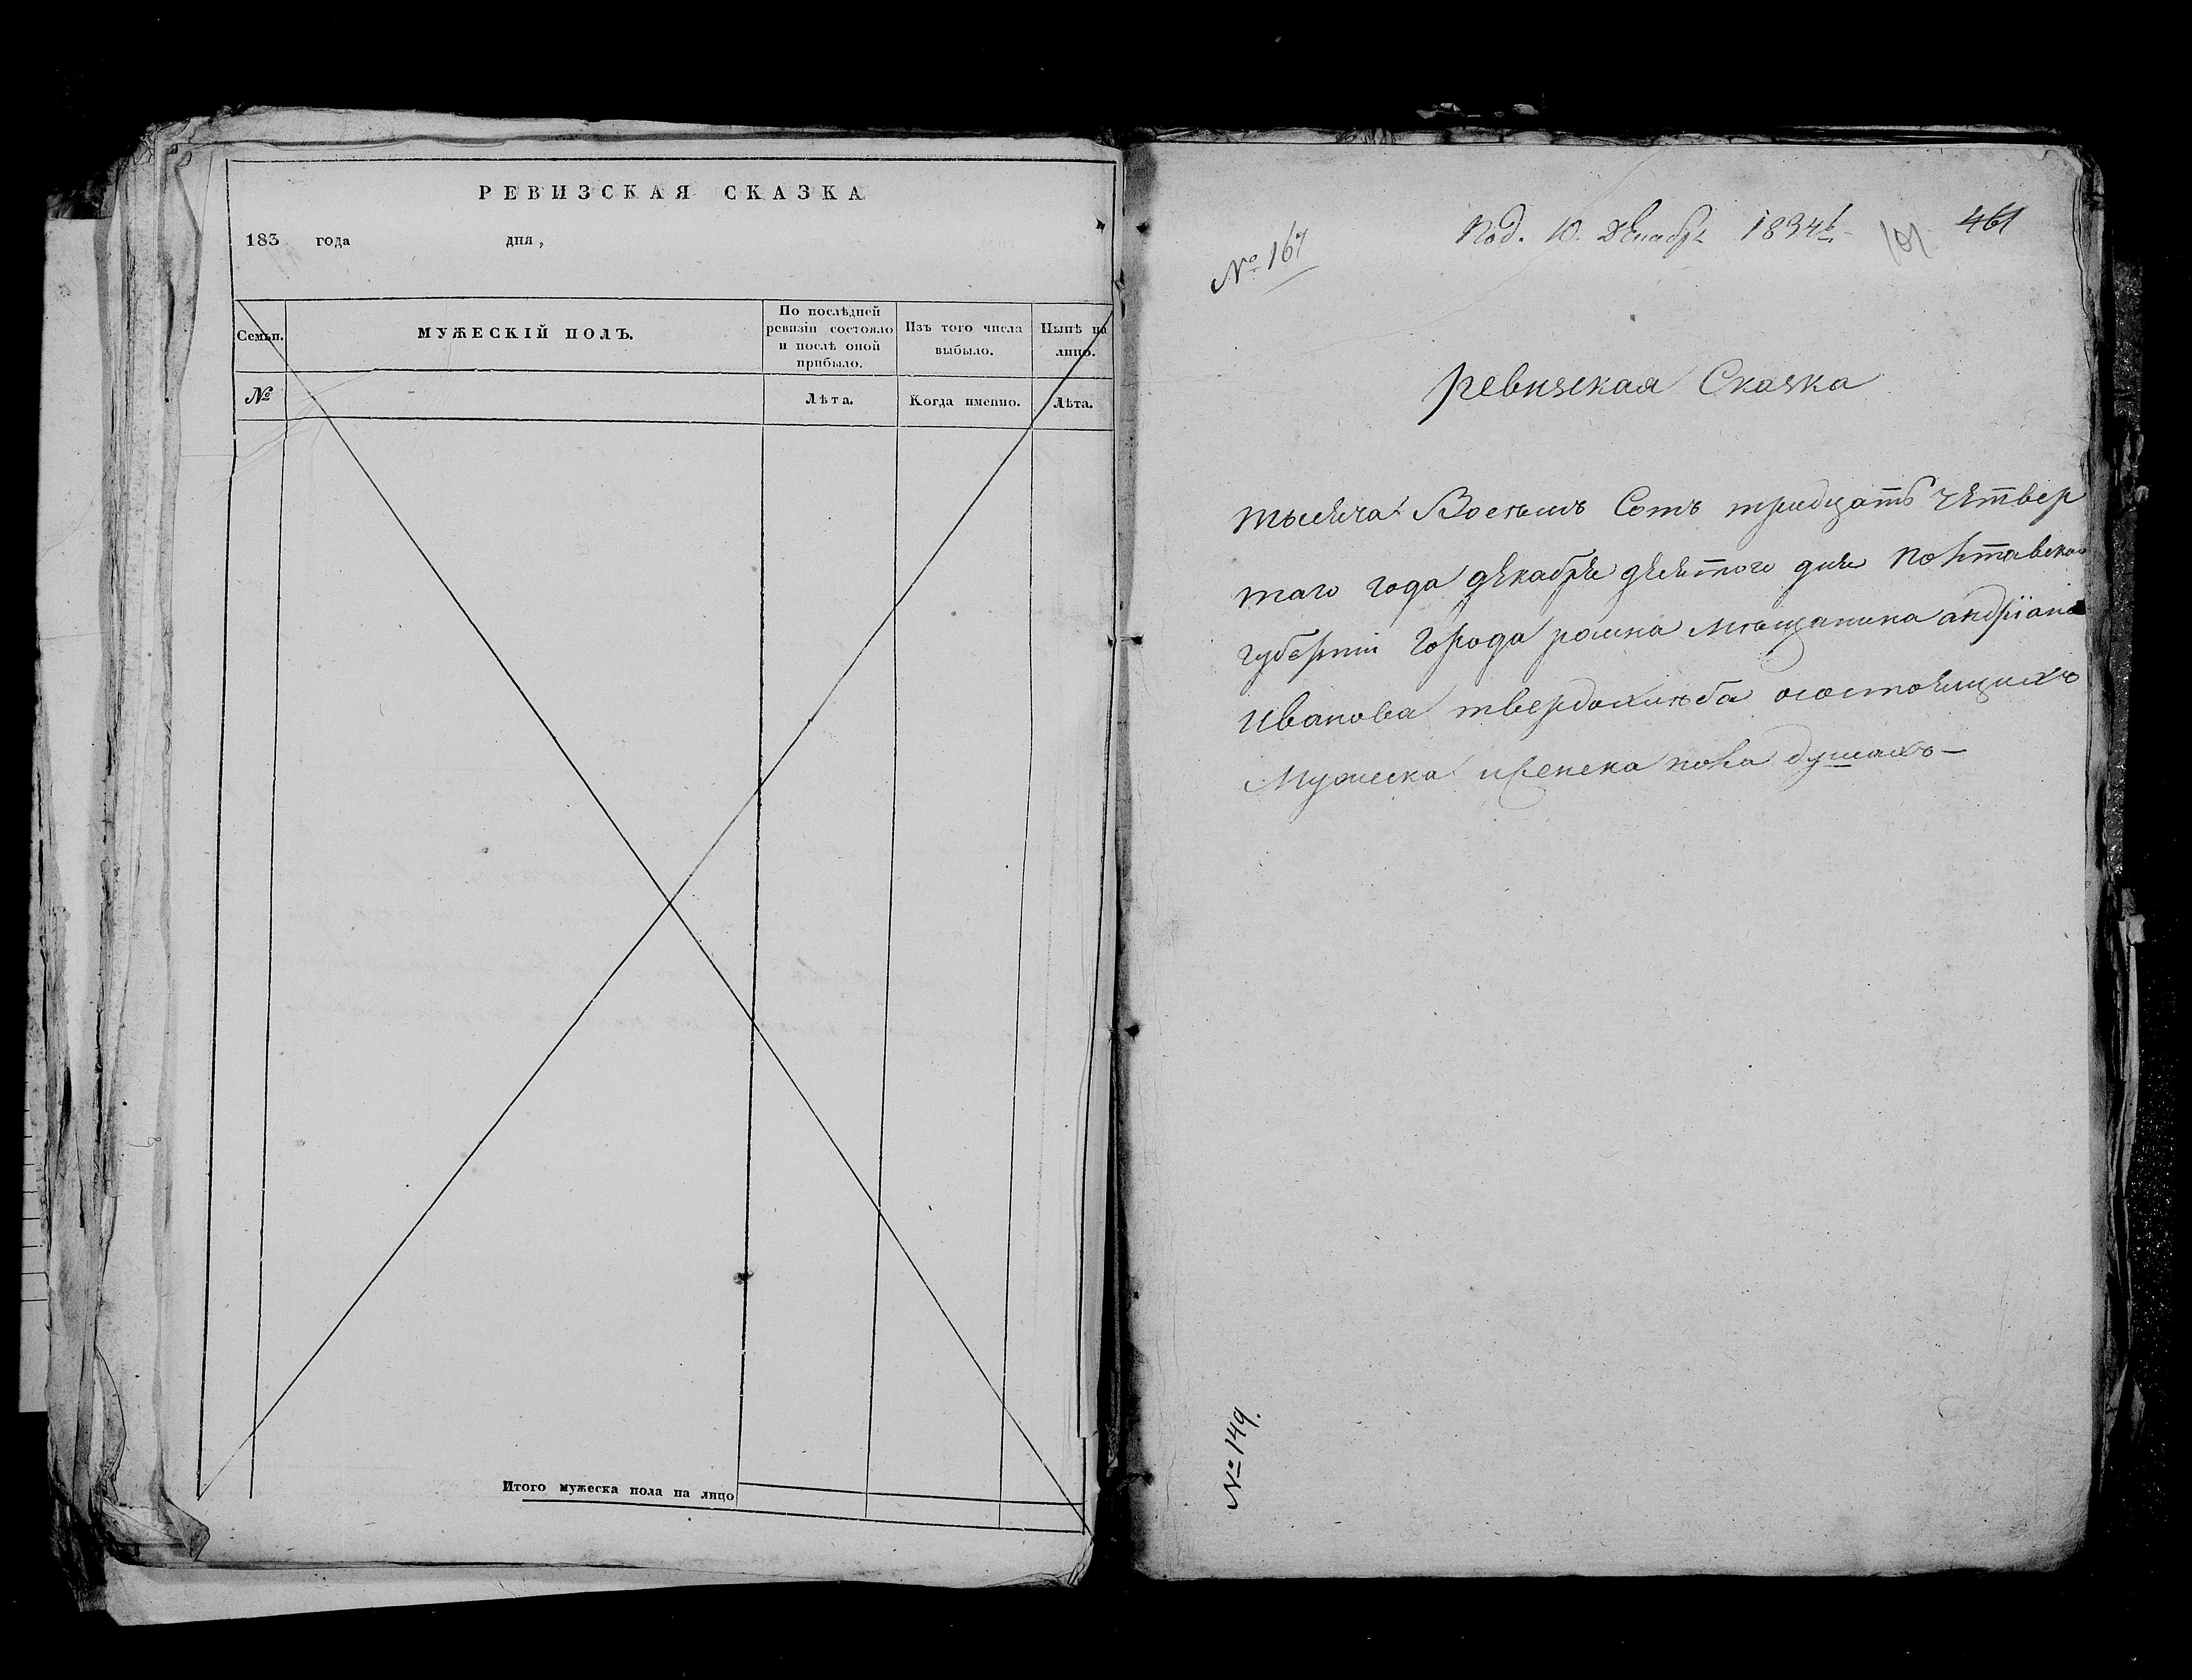 РЕВИЗСКАЯ СКАЗКА
183 года дня,
Семьи.
МУЖЕСКІЙ ПОЛЪ.
По послѣдней
ревизіи состояло
и послѣ оной
прибыло.
Изъ того числа
выбыло.
Нынѣ на
лицо.
№
Лѣта.
Когда именно.
Лѣта.
Итого мужеска пола на лицо
№ 167
Под. 10. Декабря 1834
101
461
Ревизская Сказка
тысяча Восемь Сотъ тридцать четвер
таго года декабря десятого дня Полтавской
губерніи Города ромна мѣщанина андріана
Иванова твердохлѣба осостоящихъ
Мужеска иженска пола душахъ—
№ 149.